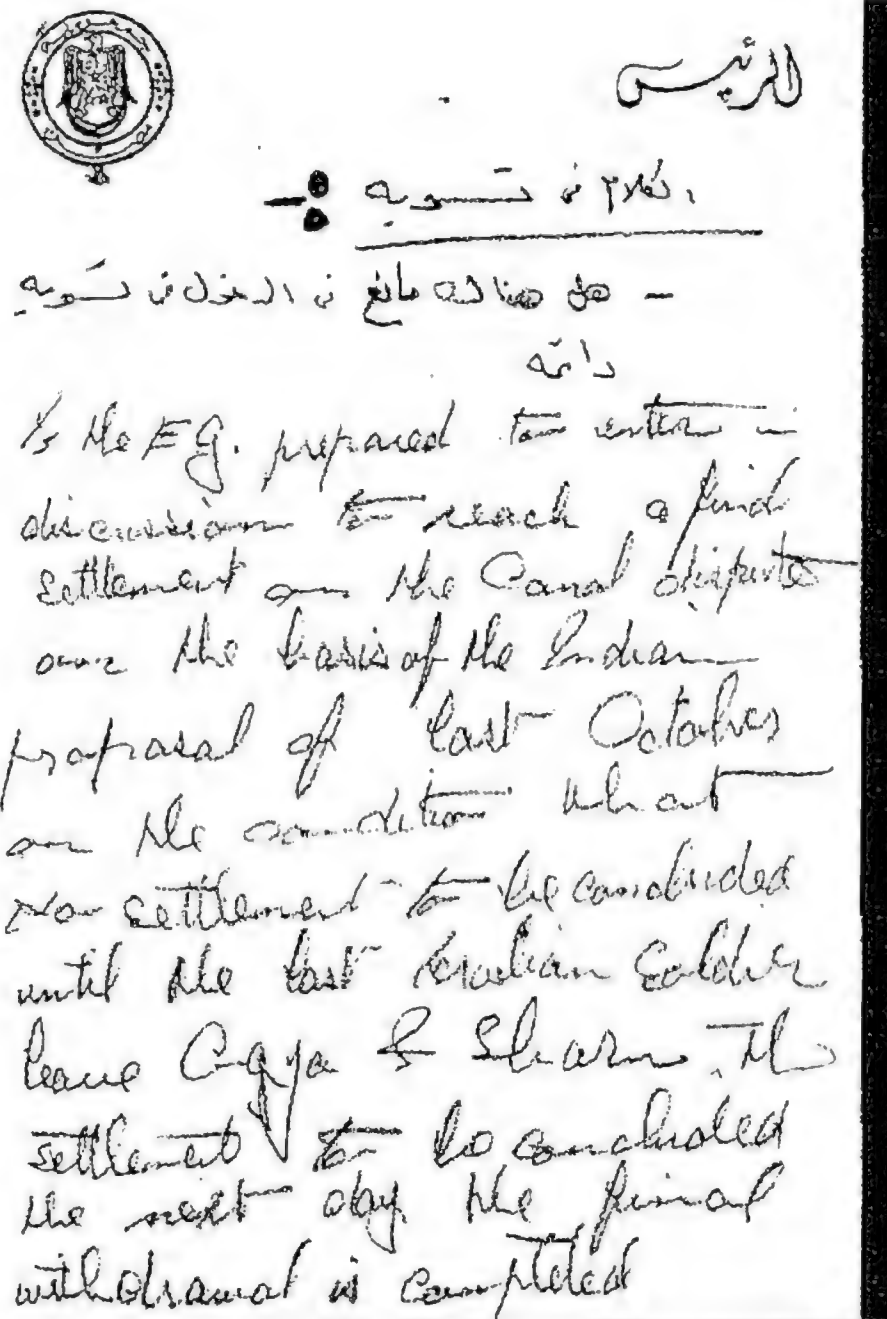 الرئيس
الكلام فى تسويه :-
- هل هناك مانع فى الدخول فى تسويه
دائمه
Is the E G. prepared to enter in
discussion to reach a final
settlement on the Canal disputes
on the basis of the Indian
proposal of last October
on the condition that
no settlement to be concluded
until the last Israelian Soldier
leave Gaza & Sharm. The
settlement to be concluded
the next day the final
withdrawal is completed